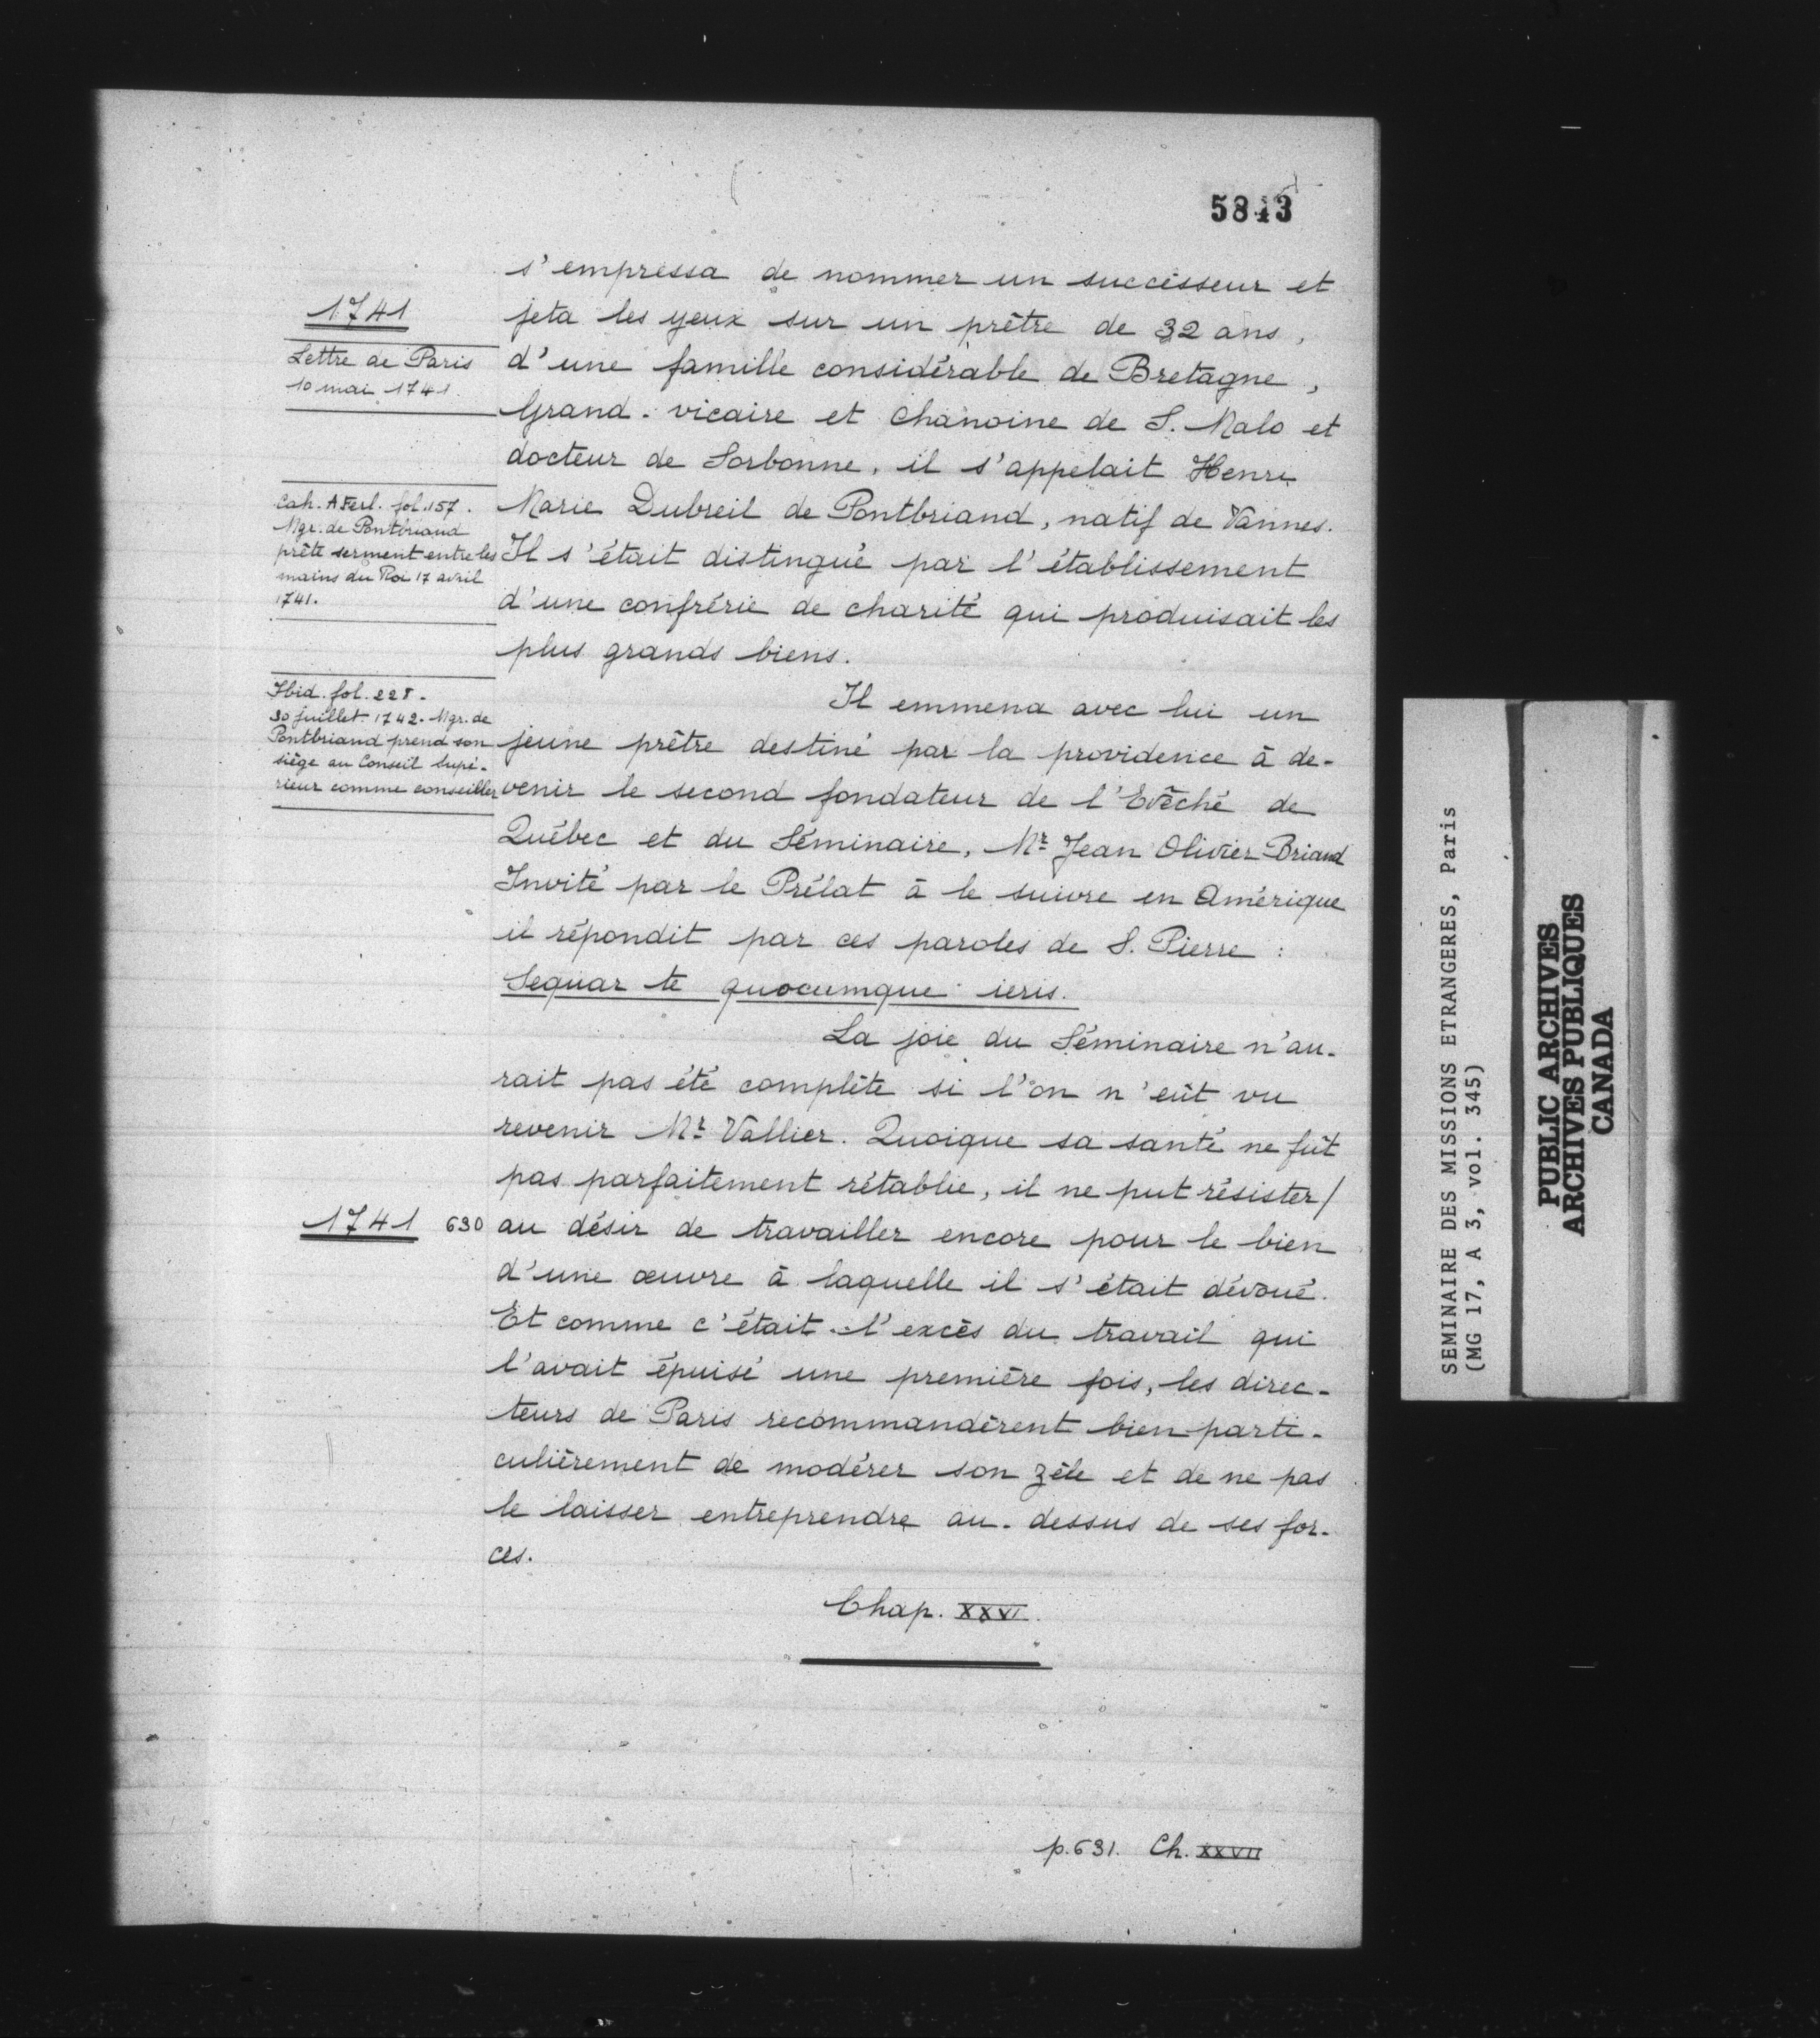 5843
s'empressa de nommer un successeur et
1741
jeta les yeux sur un prêtre de 32 ans,
Lettre de Paris
10 mai 1741.
d'une famille considérable de Bretagne,
Grand-vicaire et chanoine de S. Malo et
docteur de Sorbonne, il s'appelait Henri
Cah. A Ferl. fol. 157.
Mgr. de Pontbriand
prête serment entre les
mains du Roi 17 avril
1741.
Marie Dubreil de Pontbriand, natif de Vannes.
Il s'était distingué par l'établissement
d'une confrérie de charité qui produisait les
plus grands biens.
Ibid. fol. 228.
30 juillet 1742. Mgr. de
Pontbriand prend son
siège au Conseil Supé-
rieur comme conseiller
Il emmena avec lui un
jeune prêtre destiné par la providence à de-
venir le second fondateur de l'Evêché de
Québec et du Séminaire, Mr Jean Olivier Briand
Invité par le Prélat à le suivre en Amérique
il répondit par ces paroles de S. Pierre :
Sequar te quocumque ieris.
La joie du Séminaire n'au-
rait pas été complète si l'on n'eût vu
revenir Mr Vallier. Quoique sa santé ne fût
pas parfaitement rétablie, il ne put résister/
1741 630 au désir de travailler encore pour le bien
d'une œuvre à laquelle il s'était dévoué.
Et comme c'était l'excès du travail qui
l'avait épuisé une première fois, les direc-
teurs de Paris recommandèrent bien parti-
culièrement de modérer son zèle et de ne pas
le laisser entreprendre au-dessus de ses for-
ces.
Chap. XXVI.
p. 631. Ch. XXVII
SEMINAIRE DES MISSIONS ETRANGERES, Paris
(MG 17, A 3, vol. 345)
PUBLIC ARCHIVES
ARCHIVES PUBLIQUES
CANADA